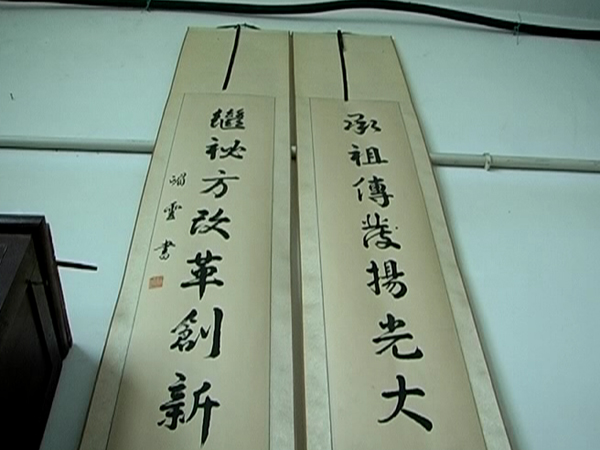 承祖傳發揚光大
繼祕方改革創新
雲書